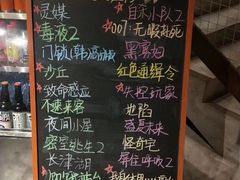 灵媒
自杀小队2
毒液2
007:无暇赴死
门锁(韩国版)
黑寡妇
沙丘
红色通缉令
致命感应
失控玩家
不速来客
沦陷
夜间小屋
盛夏未来
密室逃生2
怪奇宅
长津湖
屏住呼吸2